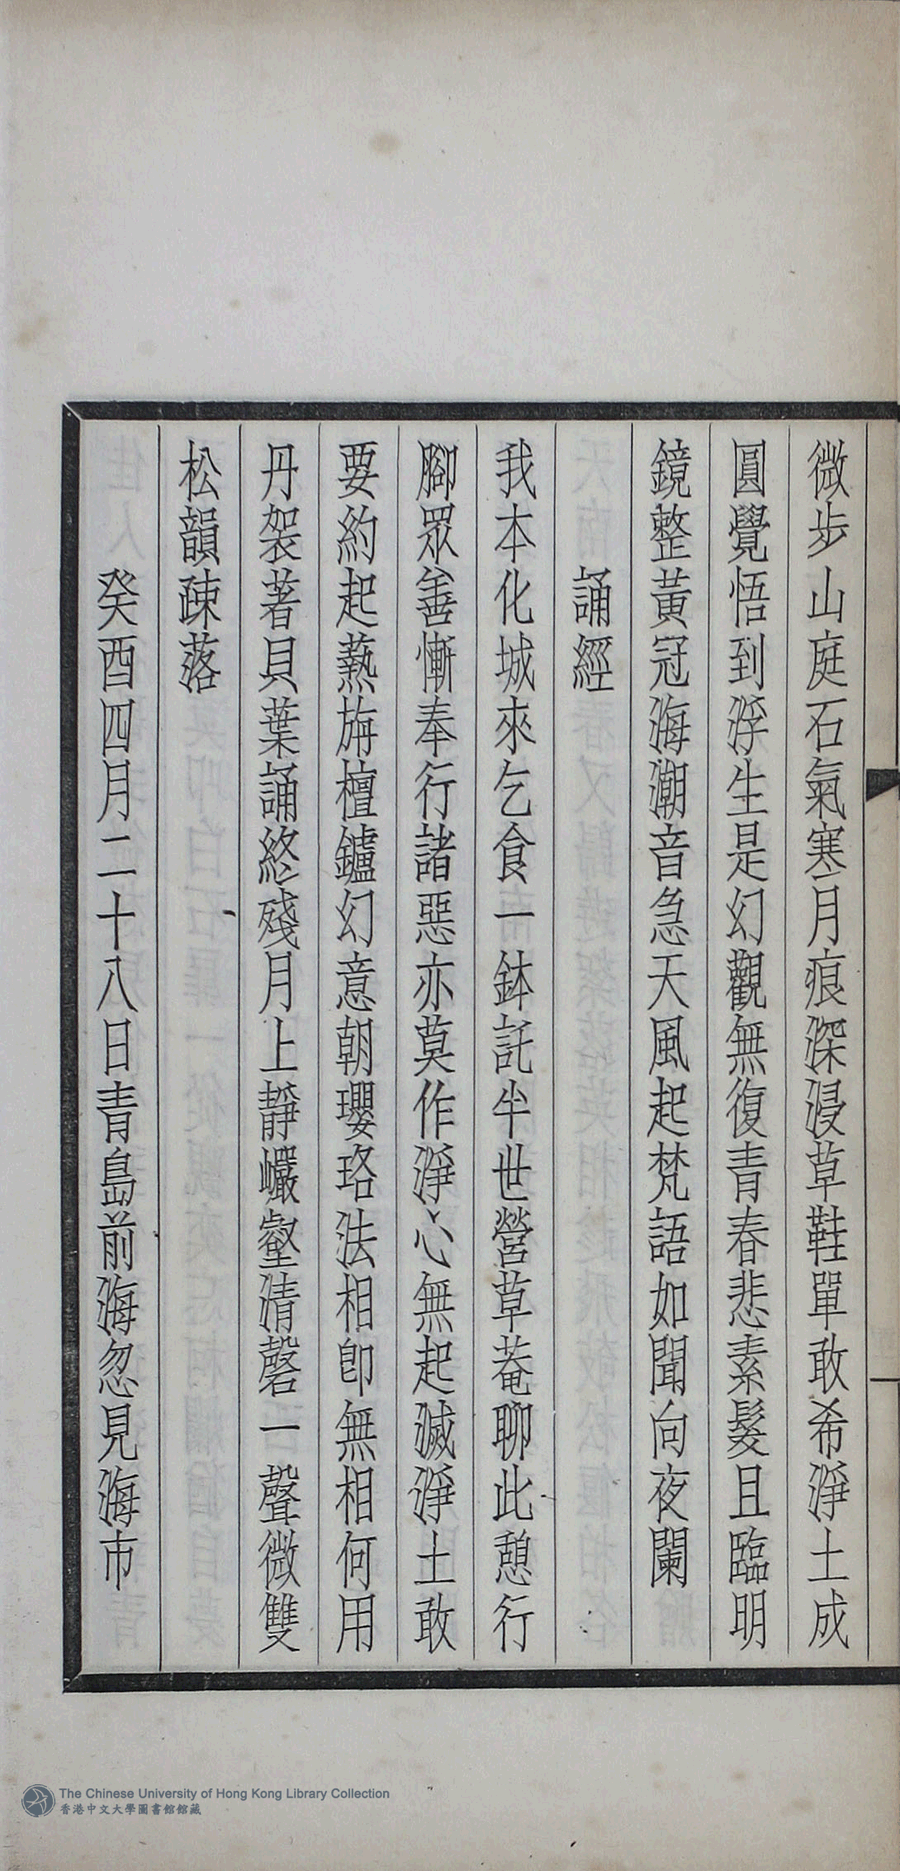 微步山庭石氣寒月痕深浸草鞋單敢希淨土成
圓覺悟到浮生是幻觀無復青春悲素髮且臨明
鏡整黃冠海潮音急天風起梵語如聞向夜闌
誦經
我本化城來乞食一鉢託半世營草菴聊此憩行
腳眾善慚奉行諸惡亦莫作淨心無起滅淨土敢
要約起爇旃檀鑪幻意朝瓔珞法相卽無相何用
丹袈著貝葉誦終殘月上靜巗壑清磬一聲微雙
松韻疎落
癸酉四月二十八日青島前海忽見海市
The Chinese University of Hong Kong Library Collection
香港中文大學圖書館館藏